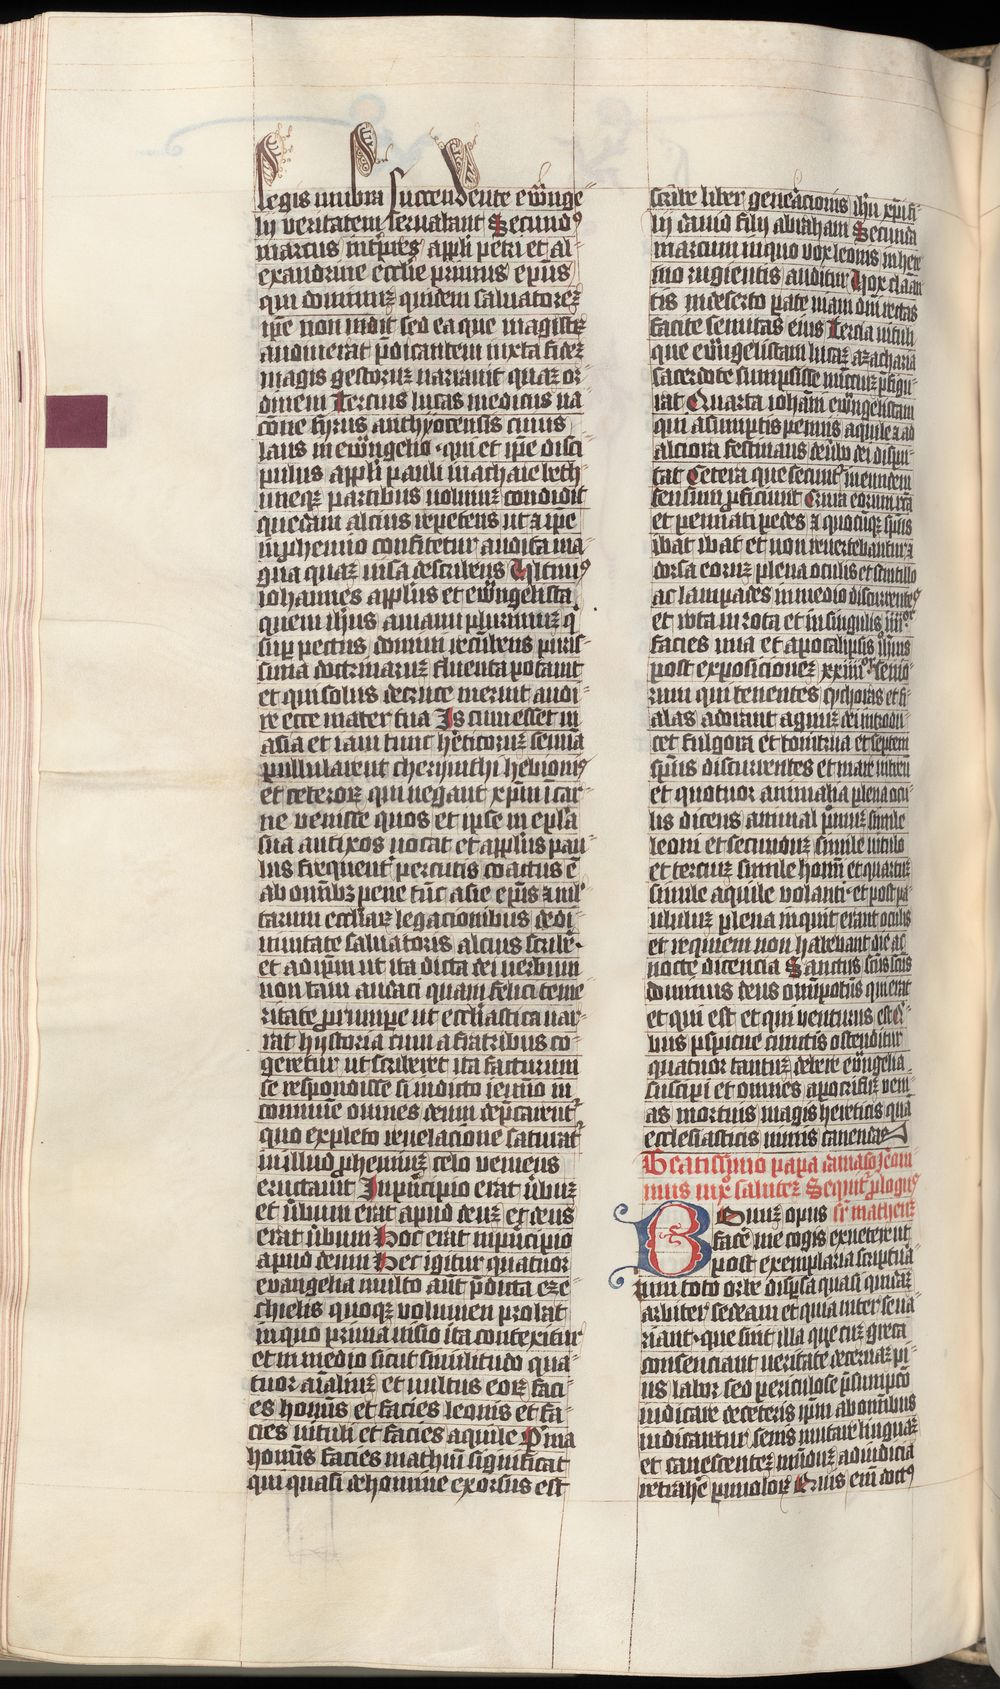 legis umbra succendente ewñge
lij veritatem seruabant Secundꝰ
marcus int̾pres app̄li petri et al
exandrine ecclīe primus ep̄us
qui dominuꝫ quidem saluatoreꝫ
ip̄e non vidit sed ea que magistꝝ
audierat p̄dicantem iuxta fideꝫ
magis gestoruꝫ narrauit quaꝫ or
dinem Tercius lucas medicus na
cōne syrus anthyocensis cuius
laus in ewñgelio · qui et ip̄e disci
pulus app̄li pauli in achaie beth
ineqꝫ partibus volumꝫ condidit
quedam alcius repetens ut ⁊ ip̄e
in phemio confitetur audita ma
gna quaꝫ uisa describens Ultimꝰ
iohannes app̄lus et ewñgelista
quem ih̄us amauit plurimuꝫ q̄
sup̄ pectus domini recūbens puris
sima doctrinaruꝫ fluenta potauit
et qui solus de cruce meruit audi
re ecce mater tua Is cum esset in
asia et iam tunc h̄eticoruꝫ semīa
pullularent cherynthi hebionis
et ceteroꝝ qui negant xp̄m ī car
ne venisse quos et ipse in ep̄la
sua antixōs uocat et app̄lus pau
lus frequent̾ percutit coactus ē
ab omībꝫ pene tūc asie ep̄is ⁊ mł
tarum eccl̄iaꝝ legacionibus de di
uinitate saluatoris alcius scrib̄e
et ad ip̄m ut ita dicā dei uerbum
non tam audaci quam felici teme
ritate prumpe ut eccl̄iastica nar
rat hystoria cum a fratribus co
geretur ut scriberet ita facturum
se respondisse si indicto ieiuīo in
commune omnes deum dep̄carent᷑
quo expleto reuelacione saturat᷑
in illud phemiuꝫ celo veniens
eructauit In principio erat ūbuꝫ
et ūbum erat apud deuꝫ et deus
erat ūbum hoc erat in principio
apud deum hec igitur quatuor
evangelia multo ant̄ p̄dicta eze
chielis quoqꝫ volumen probat
in quo prima uisio ita contexitur
et in medio sicut similitudo qua
tuor aīaliuꝫ et uultus eoꝝ faci
es homīs et facies leonis et fa
cies uituli et facies aquile Prīa
homīs facies matheū significat
qui quasi de homine exorsus est
scribe liber generacionis ih̄u xp̄i fi
lij dauid filij abraham Secunda
marcum in quo vox leonis in here
mo rugientis auditur Uox clamā
tis in deserto parate uiam dn̄i rectas
facite semitas eius Tercia uituli
que ewñgelistam lucaꝫ a zacharia
sacerdote sumpsisse iniciuꝫ p̄figu
rat Quarta iohan̄em ewñgelistam
qui assumptis pennis aquile ⁊ ad
alciora festinans de ūbo dei dispu
tat Cetera que secunt᷑ in eundem
sensum p̄ficiunt Crura eorum rc̄ta
et pennati pedes ⁊ quocūqꝫ sp̄us
ibat ibant et non reuertebantur ⁊
dorsa eoruꝫ plena oculis et scintille
ac lampades in medio discurrentes
et rota in rota et in singulis iiiior
facies una et apocalipsis iohānis
post exposicioneꝫ xxiiiior senio
rum qui tenentes cytharas et fi
alas adorant agnuꝫ dei introdu
cet fulgora et tonitrua et septem
sp̄us discurrentes et mare vitreū
et quatuor animalia plena ocu
lis dicens animal p̄muꝫ simile
leoni et secunduꝫ simile uitulo
et terciuꝫ simile homī et quartuꝫ
simile aquile volanti · et post pa
ululuꝫ plena inquit erant oculis
et requiem non habebant die ac
nocte dicencia Sanctus scūs scūs
dominus deus omīpotēs qui erat
et qui est et qui venturus est Qui
bus p̄spicue cunctis ostenditur
quatuor tantuꝫ debere ewñgelia
suscipi et omnes apocrifaꝝ neni
as mortuis magis hereticis quā
ecclesiasticis uiuis canendas
Beatissimo pape damaso Jeroni
mus mꝫ saluteꝫ Sequit᷑ ꝓlogus
Nouuꝫ opus sr̄ matheuꝫ
facē me cogis ex ueteri ut
post exemplaria scriptura
rum toto orbe disp̄sa quasi quidaꝫ
arbiter sedeam et quia inter se ua
riant · que sint illa que cuꝫ greca
consenciant ueritate decernaꝫ pi
us labor sed periculosa p̄sumpcō
iudicare de ceteris ip̄m ab omībus
iudicandum senis mutare linguaꝫ
et canescenteꝫ mūduꝫ ad inicia
retrahē paruuloꝝ Quis em̄ doctꝰ